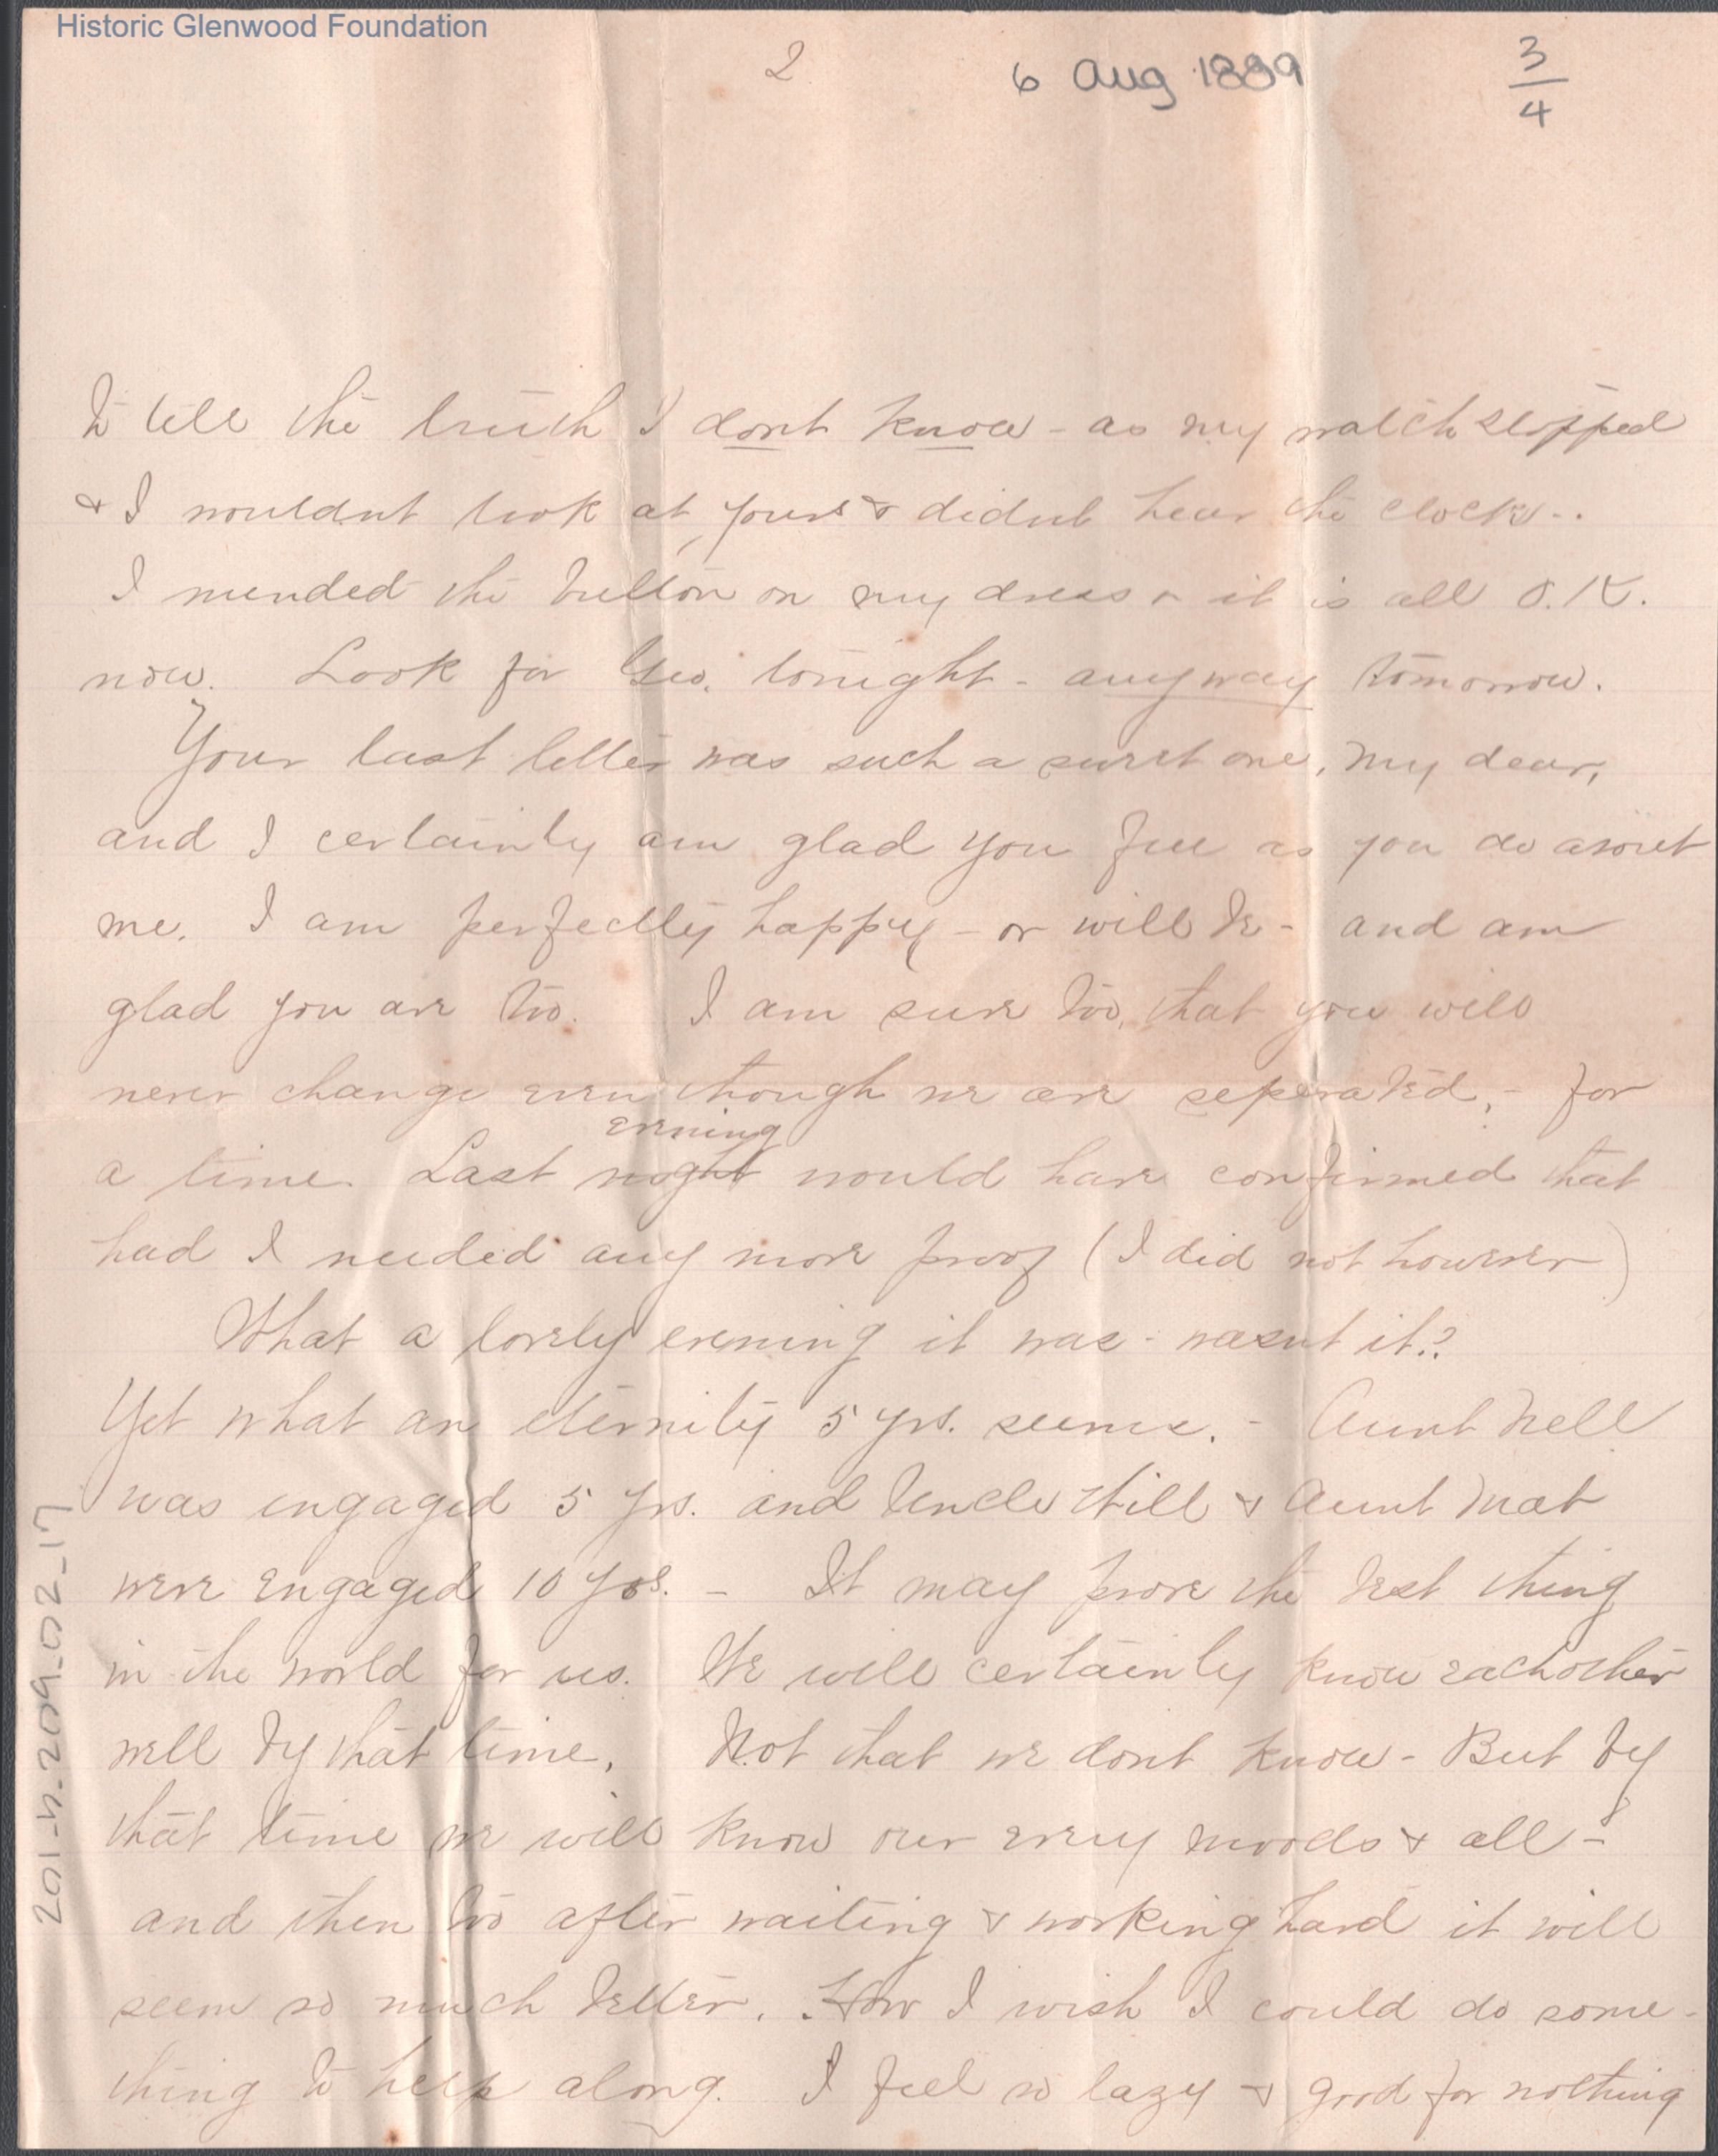 Historic Glenwood Foundation
2
6 Aug 1889
3/4
To tell the truth I dont know - as my watch stopped
& I wouldnt look at yours & didnt hear the clock..
I mended the button on my dress & it is all O.K.
now. Look for Geo. tonight - anyway tomorrow.
Your last letter was such a sweet one, my dear,
and I certainly am glad you feel as you do about
me. I am perfectly happy - or will be - and am
glad you are too. I am sure too, that you will
never change even though we are seperated, - for
evening
a time. Last night would have confirmed that
had I needed any more proof (I did not however)
What a lovely evening it was - wasnt it??
Yet what an eternity 5 yrs. seems. - Aunt Nell
was engaged 5 yrs. and Uncle Will & Aunt Mat
were engaged 10 yrs. - It may prove the best thing
in the world for us. We will certainly know eachother
well by that time. Not that we dont know - But by
that time we will know our every moods & all -
and then too after waiting & working hard it will
seem so much better. How I wish I could do some-
thing to help along. I feel so lazy & good for nothing
201-4.209.02_17